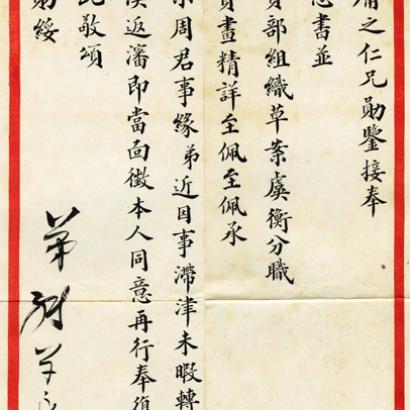 庸之仁兄勛鑒接奉
惠書並
貴部組織草案虞衡分職
擘畫精詳至佩至佩承
示周君事緣弟近因事滯津未暇轉
俟返瀋即當面徵本人同意再行奉復
此敬頌
勛綏
弟